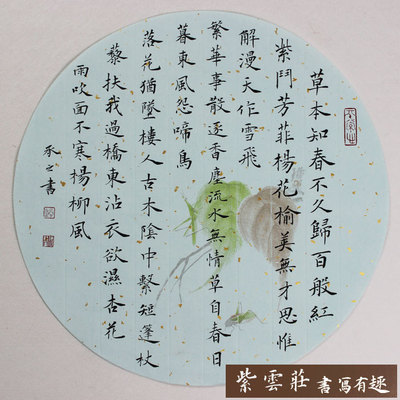 草本知春不久歸百般紅
紫鬥芳菲楊花榆莢無才思惟
解漫天作雪飛
繁華事散逐香塵流水無情草自春日
暮東風怨啼鳥
落花猶墜樓人古木陰中繫短篷杖
藜扶我過橋東沾衣欲濕杏花
雨吹面不寒楊柳風
承之書
紫雲莊 書寫有趣